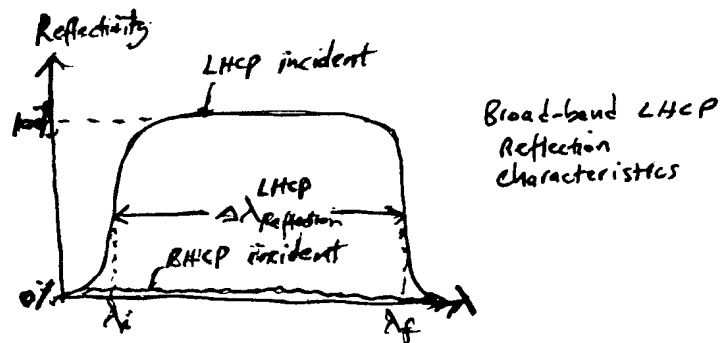 Reflectivity
LHCP incident
100%
Broad-band LHCP
Reflection
characteristics
LHCP
Δλ Reflection
RHCP incident
0%
λ
λi
λf